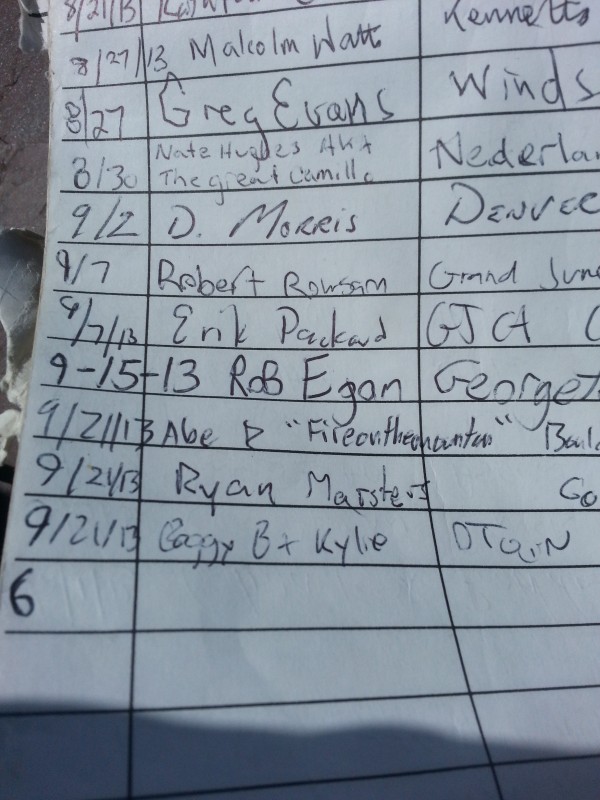 8/21/13
8/27/13 Malcolm Watt Kennetts
8/27 Greg Evans Winds
8/30 Nate Hughes AKA Nederla
The great Camillo
9/2 D. Morris Denver
9/7 Robert Rowsam Grand June
9/7/13 Erik Packard GJCA C
9-15-13 Rob Egan Georget
9/21/13 Abe D "Fireonthemountain" Boul
9/21/13 Ryan Marsters Go
9/21/13 B + Kylie
6